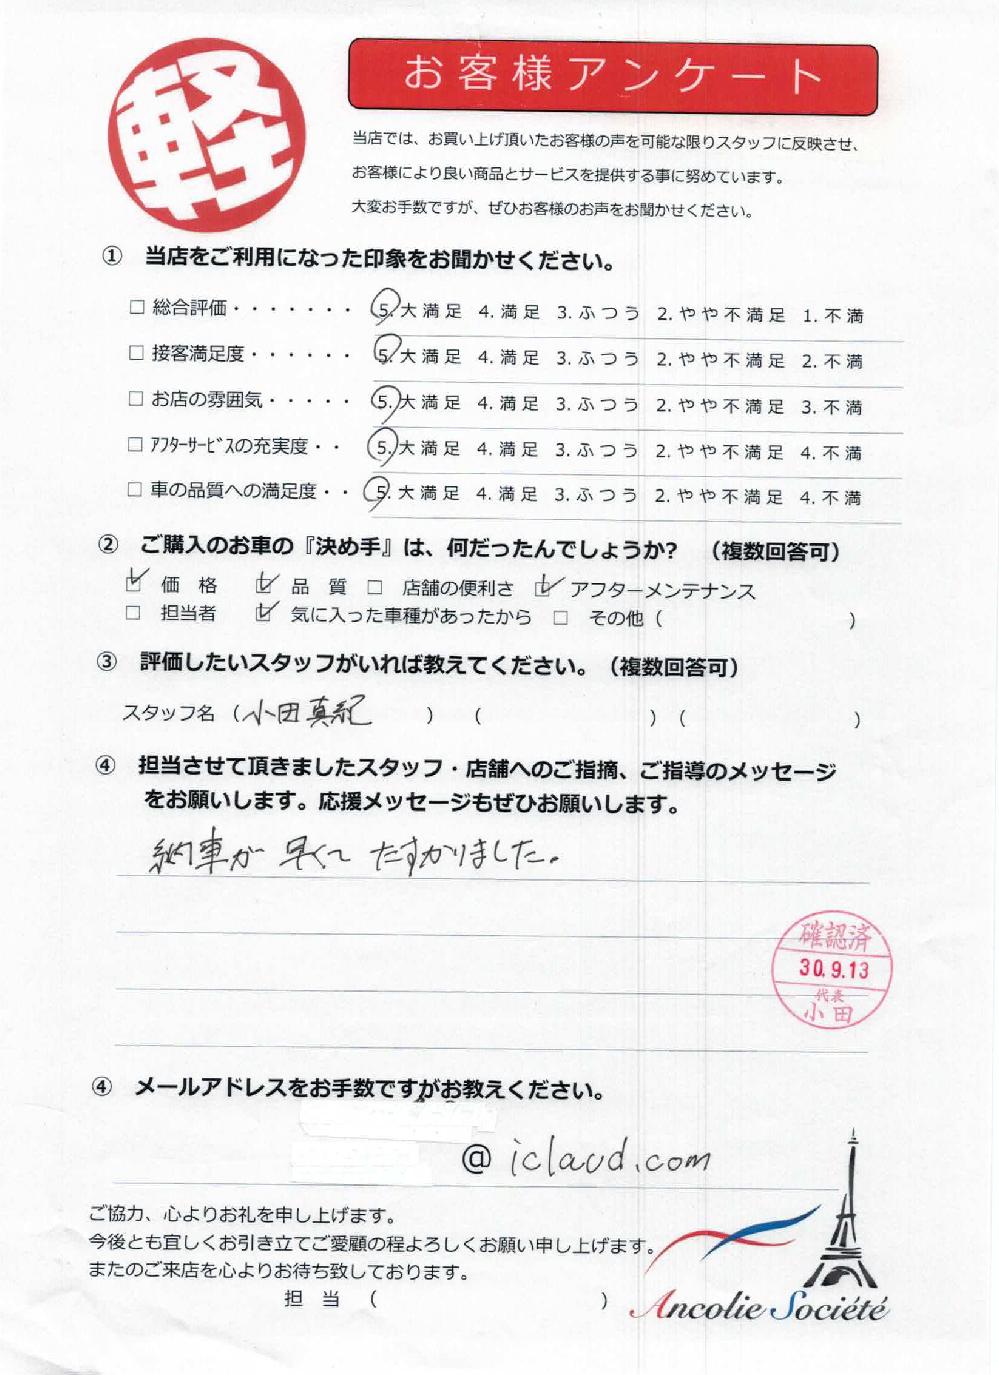 軽
お客様アンケート
当店では、お買い上げ頂いたお客様の声を可能な限りスタッフに反映させ、
お客様により良い商品とサービスを提供する事に努めています。
大変お手数ですが、ぜひお客様のお声をお聞かせください。
① 当店をご利用になった印象をお聞かせください。
□ 総合評価・・・・・・・ 5.大満足 4.満足 3.ふつう 2.やや不満足 1.不満
□ 接客満足度・・・・・・ 5.大満足 4.満足 3.ふつう 2.やや不満足 2.不満
□ お店の雰囲気・・・・・ 5.大満足 4.満足 3.ふつう 2.やや不満足 3.不満
□ ｱﾌﾀｰｻｰﾋﾞｽの充実度・・ 5.大満足 4.満足 3.ふつう 2.やや不満足 4.不満
□ 車の品質への満足度・・ 5.大満足 4.満足 3.ふつう 2.やや不満足 4.不満
② ご購入のお車の『決め手』は、何だったんでしょうか? （複数回答可）
☑ 価 格 ☑ 品 質 □ 店舗の便利さ ☑ アフターメンテナンス
□ 担当者 ☑ 気に入った車種があったから □ その他（ ）
③ 評価したいスタッフがいれば教えてください。（複数回答可）
スタッフ名（小田真紀 ）（ ）（ ）
④ 担当させて頂きましたスタッフ・店舗へのご指摘、ご指導のメッセージ
をお願いします。応援メッセージもぜひお願いします。
納車が早くて たすかりました。
確認済
30.9.13
代表
小田
④ メールアドレスをお手数ですがお教えください。
@ iclaud.com
ご協力、心よりお礼を申し上げます。
今後とも宜しくお引き立てご愛顧の程よろしくお願い申し上げます。
またのご来店を心よりお待ち致しております。
担 当 （ ）
Ancolie Société